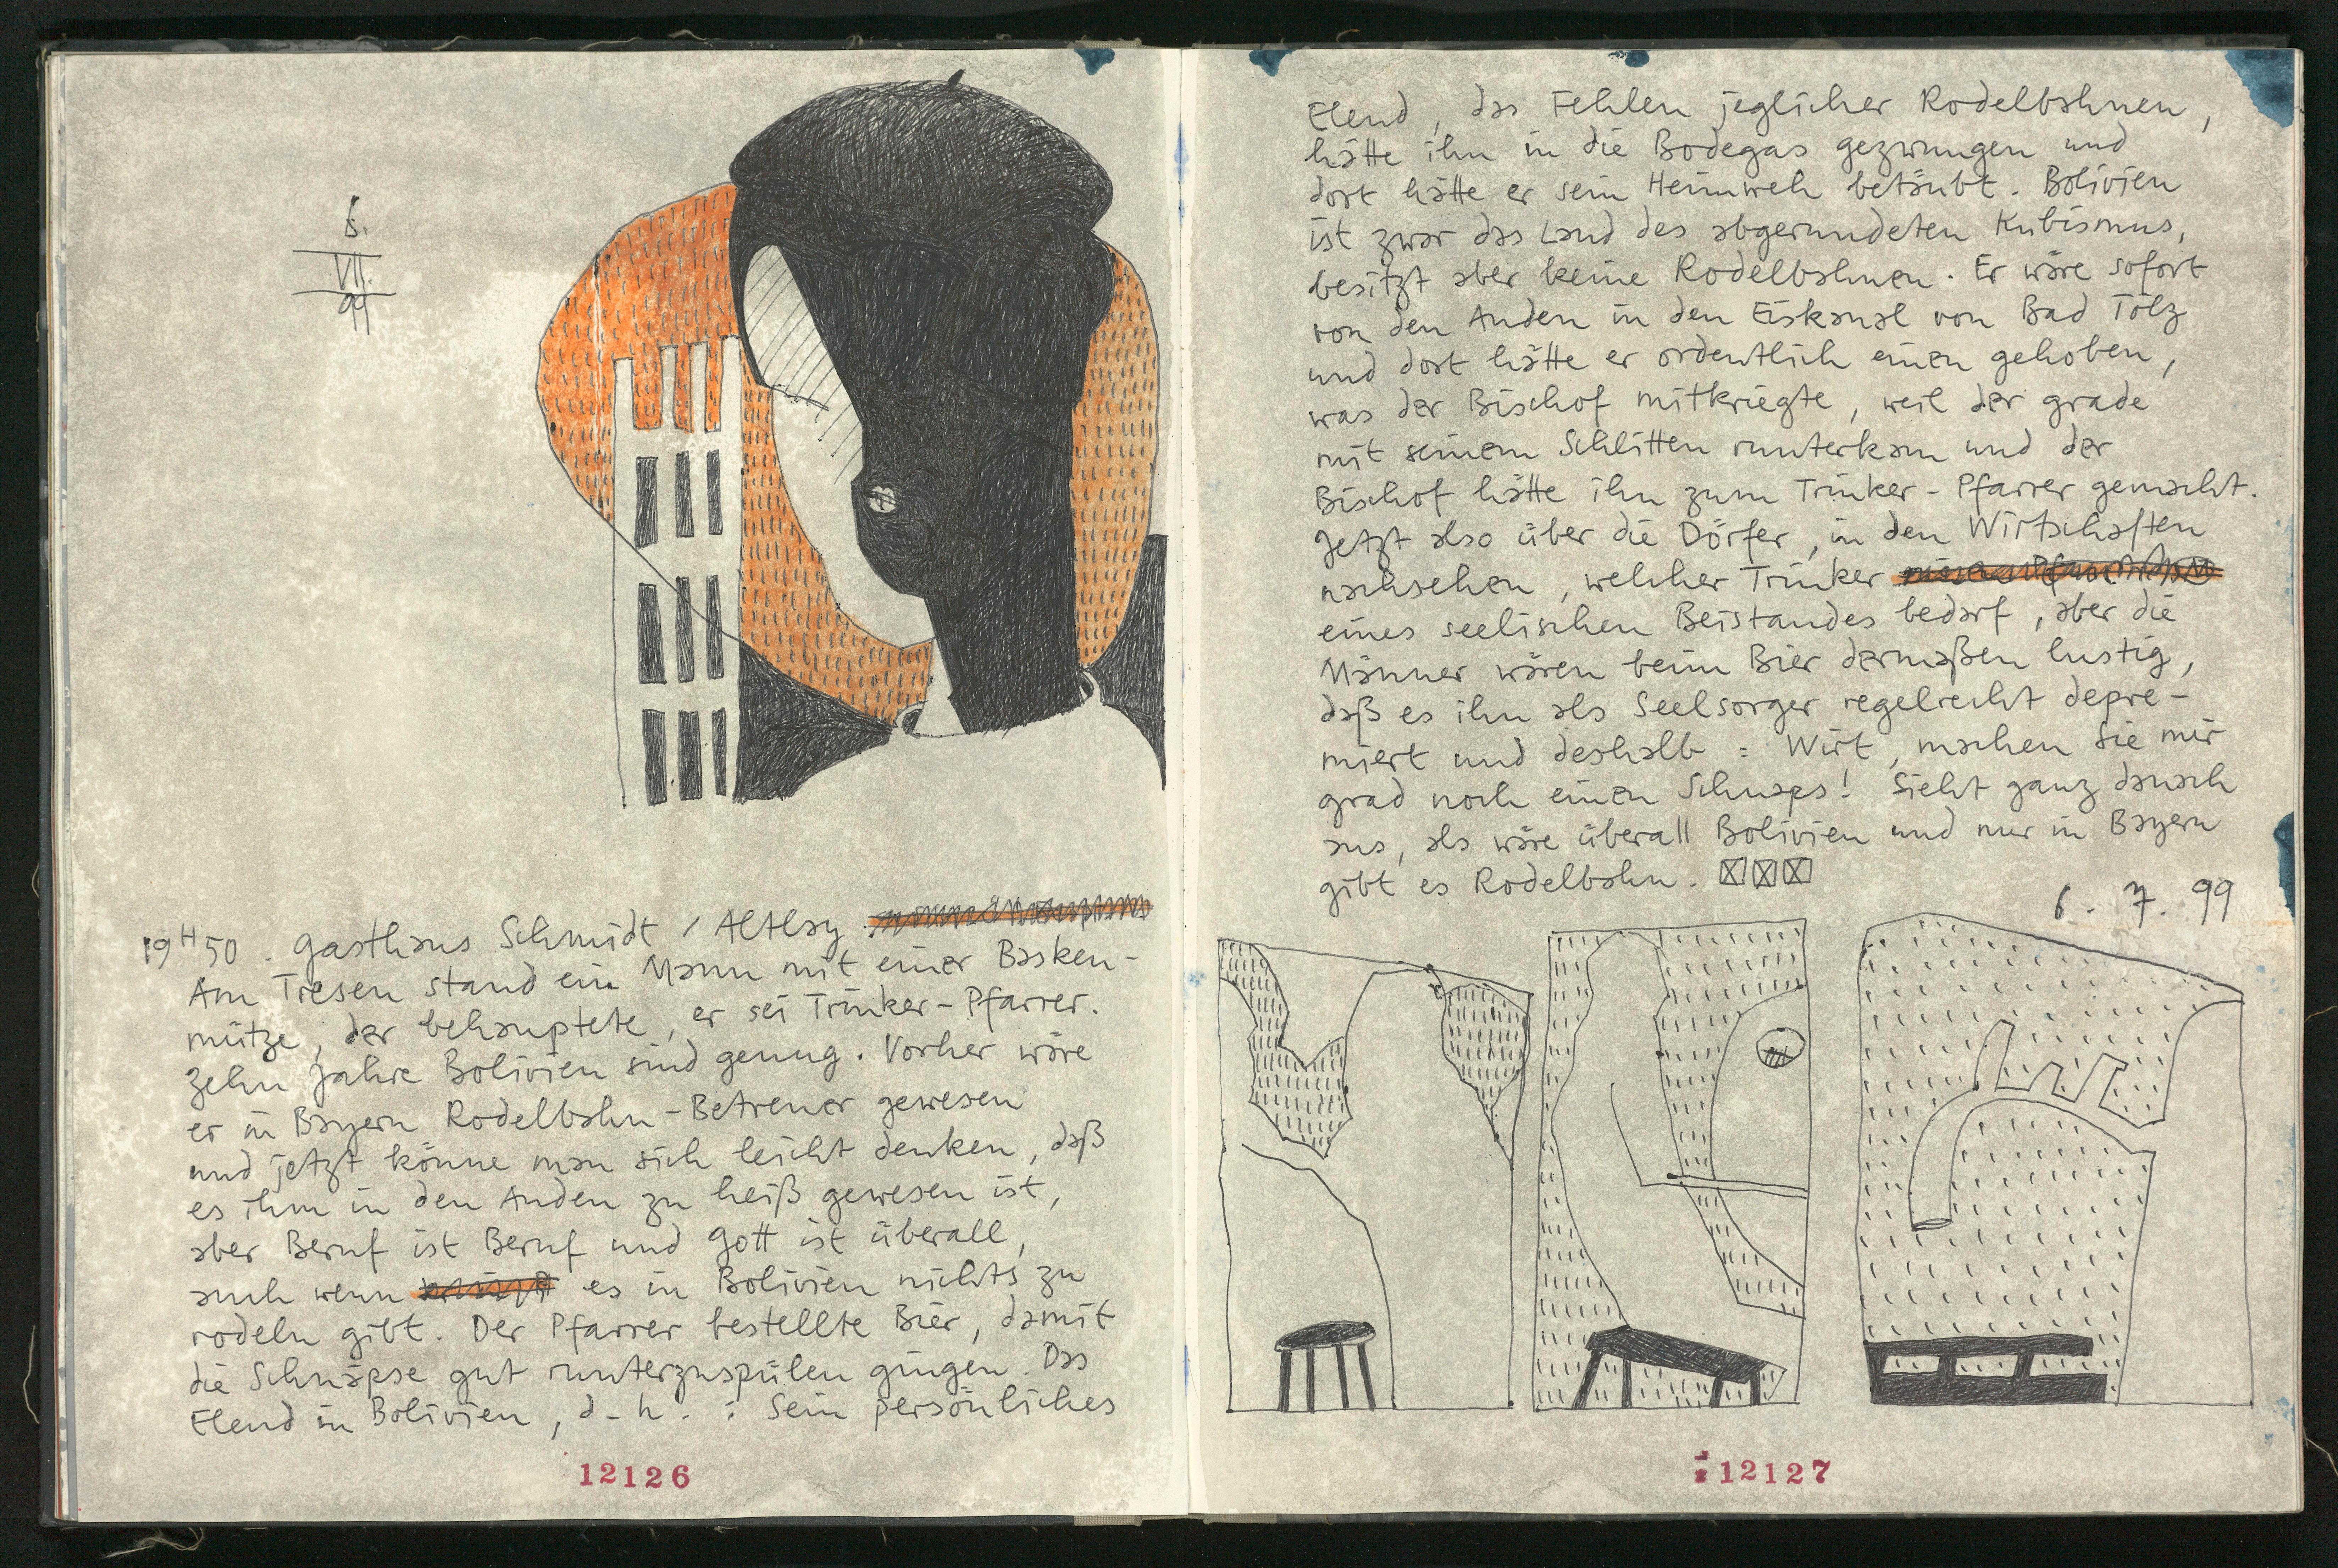 6.
VII.
99
19H50. Gasthaus Schmidt / Altlay.
Am Tresen stand ein Mann mit einer Basken-
mütze, der behauptete, er sei Trinker-Pfarrer.
Zehn Jahre Bolivien sind genug. Vorher wäre
er in Bayern Rodelbahn-Betreuer gewesen
und jetzt könne man sich leicht denken, daß
es ihm in den Anden zu heiß gewesen ist,
aber Beruf ist Beruf und Gott ist überall,
auch wenn es in Bolivien nichts zu
rodeln gibt. Der Pfarrer bestellte Bier, damit
die Schnäpse gut runterzuspülen gingen. Das
Elend in Bolivien, d.h.: Sein persönliches
12126
Elend, das Fehlen jeglicher Rodelbahnen,
hätte ihn in die Bodegas gezwungen und
dort hätte er sein Heimweh betäubt. Bolivien
ist zwar das Land des abgerundeten Kubismus,
besitzt aber keine Rodelbahnen. Er wäre sofort
von den Anden in den Eiskanal von Bad Tölz
und dort hätte er ordentlich einen gehoben,
was der Bischof mitkriegte, weil der grade
mit seinem Schlitten runterkam und der
Bischof hätte ihn zum Trinker-Pfarrer gemacht.
Jetzt also über die Dörfer, in den Wirtschaften
nachsehen, welcher Trinker
eines seelischen Beistandes bedarf, aber die
Männer wären beim Bier dermaßen lustig,
daß es ihn als Seelsorger regelrecht depre-
miert und deshalb: Wirt, machen Sie mir
grad noch einen Schnaps! Sieht ganz danach
aus, als wäre überall Bolivien und nur in Bayern
gibt es Rodelbahn.
6. 7. 99
12127